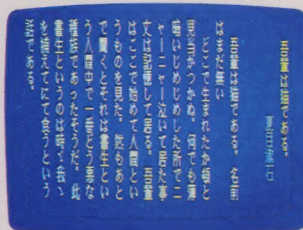 吾輩は猫である。
夏目漱石
吾輩は猫である。名前
はまだ無い
どこで生まれたか頓と
見当がつかぬ。何でも薄
暗いじめじめした所でニ
ャーニャー泣いて居た事
丈は記憶して居る。吾輩
はここで始めて人間とい
うものを見た。然もあと
で聞くとそれは書生とい
う人間中で一番どう悪な
種族であったそうだ。此
書生というのは時々我々
を捕えてにて食うという
話である。